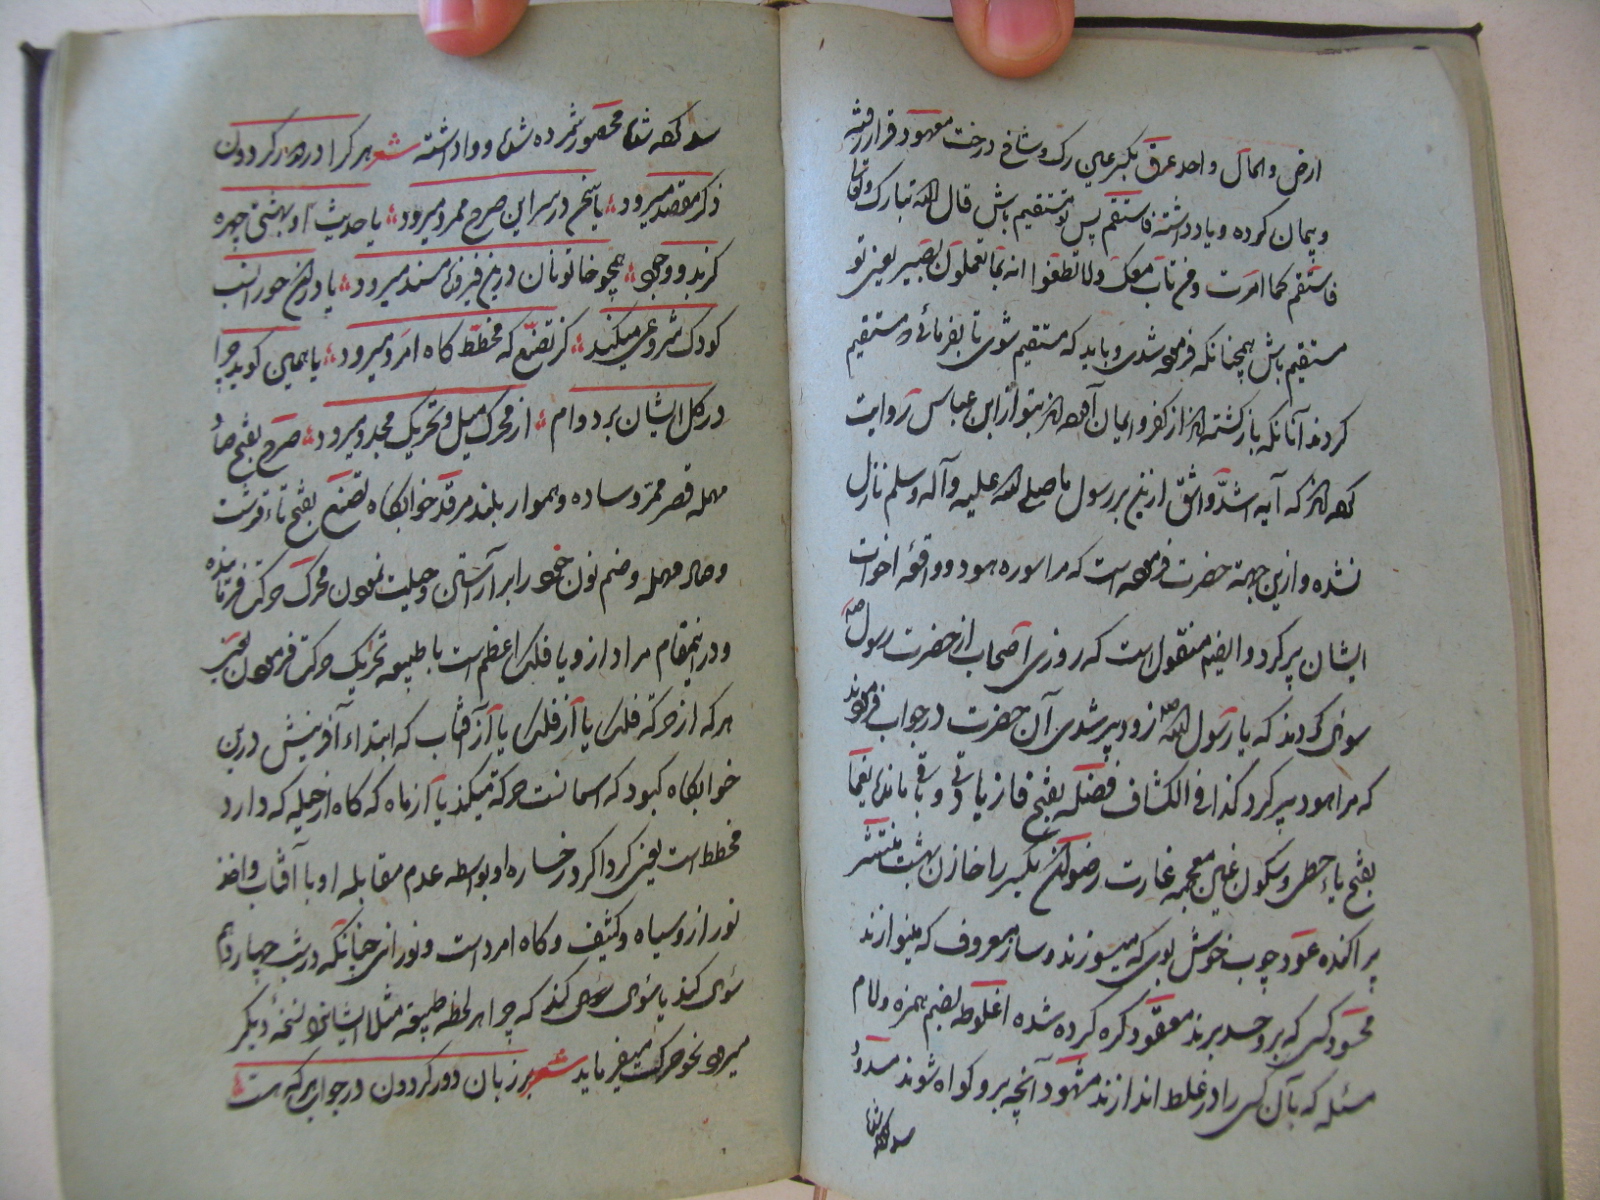 ارض والمآل واحد عرق بکسر عین رک و شاخ درخت معهود قرار رفته
و پیمان کرده و یاد داشته فاستقم پس تو مستقیم باش قال الله تبارک و تعالی
فاستقم کما امرت و من تاب معک ولا تطغوا انه بما تعملون بصیر یعنی تو
مستقیم باش همچنانکه فرموده شدی و باید که مستقیم شوی تا بفرمائی و مستقیم
کردند آنانکه بازکشته اند از کفر و ایمان آورده اند بتو از ابن عباس روایت
کرده اند که آیه اشد و اشق ازین بر رسول ما صلی الله علیه وآله وسلم نازل
نشده و ازین جهة حضرت فرموده است که مرا سوره هود و واقعه اخوات
ایشان پیر کرد و ایضا منقول است که روزی اصحاب از حضرت رسول
سوال کردند که یا رسول الله زود پیر شدی آن حضرت در جواب فرمودند
که مرا هود پیر کرد کذا فی الکشاف فضله بفتح فا زیادتی و باقی مانده یغما
بفتح یاء حطی و سکون غین معجمه غارت رضوان بکسر را خازن بهشت منتشر
پراکنده عود چوب خوش بوی که میسوزند و ساز معروف که مینوازند
محسود کسی که برو حسد برند معقود کره کرده شده اغلوطه بضم همزه ولام
مسئله که بآن کسی را در غلط اندازند مشهود آنچه برو کواه شوند مسدود
سد کرده شده
سد کرده شده محصور شمرده شده و واداشته شعر هر کرا در دور کردون
ذکر مقصد میرود یا سخن در سر این صرح ممرد میرود یا حدیث او بهشتی چهره
کرند و وجود همچو خاتونان درین فیروزه مسند میرود یا در انخ حور انسب
کودک شروعی میکنند کز تصنع که مخطط کاه امرد میرود یا همین کوید چرا
در کل ایشان بر دوام از محرک میل و تحریک مجدد میرود صرح بفتح صاد
مهمله قصر ممرد ساده و هموار بلند مرقد خوابکاه تصنع بفتح تاء قرشت
و صاد مهمله و ضم نون خود را بر آراستن و حیلت نمودن محرک حرکت فرماینده
و در اینمقام مراد ازو یا فلک اعظم است یا طبیعه تحریک حرکت فرمودن یعنی
هر که از حرکة فلک یا از فلک یا از آفتاب که ابتداء آفرینش درین
خوابکاه کبود که اسمانست حرکة میکند یا از ماه که کاه از حیله که دارد
مخطط است یعنی کرداکرد رخساره او بواسطه عدم مقابله او با آفتاب و اخذ
نور ازو سیاه و کثیف و کاه امرد است و نورانی چنانکه در شب چهارده
سوال کند یا سوال کند که چرا هر لحظه طبیعه مثل ایشانرا نسخه دیکر
میرود نحو حرکت میفرماید شعر بر زبان دور کردون در جواب هر که هست